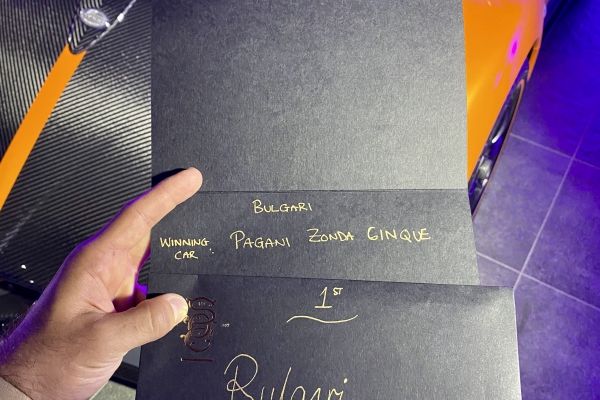 BULGARI
WINNING CAR: PAGANI ZONDA CINQUE
1ST
Bulgari